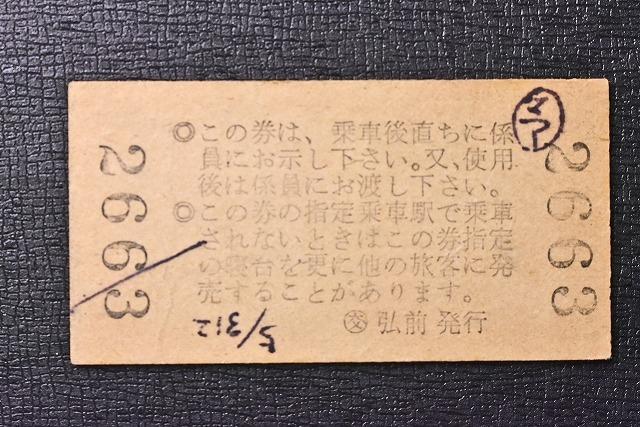 ◎この券は、乗車後直ちに係
員にお示し下さい。又、使用
後は係員にお渡し下さい。
◎この券の指定乗車駅で乗車
されないときはこの券指定
の寝台を更に他の旅客に発
売することがあります。
㊋弘前発行
2663
2663
5/312